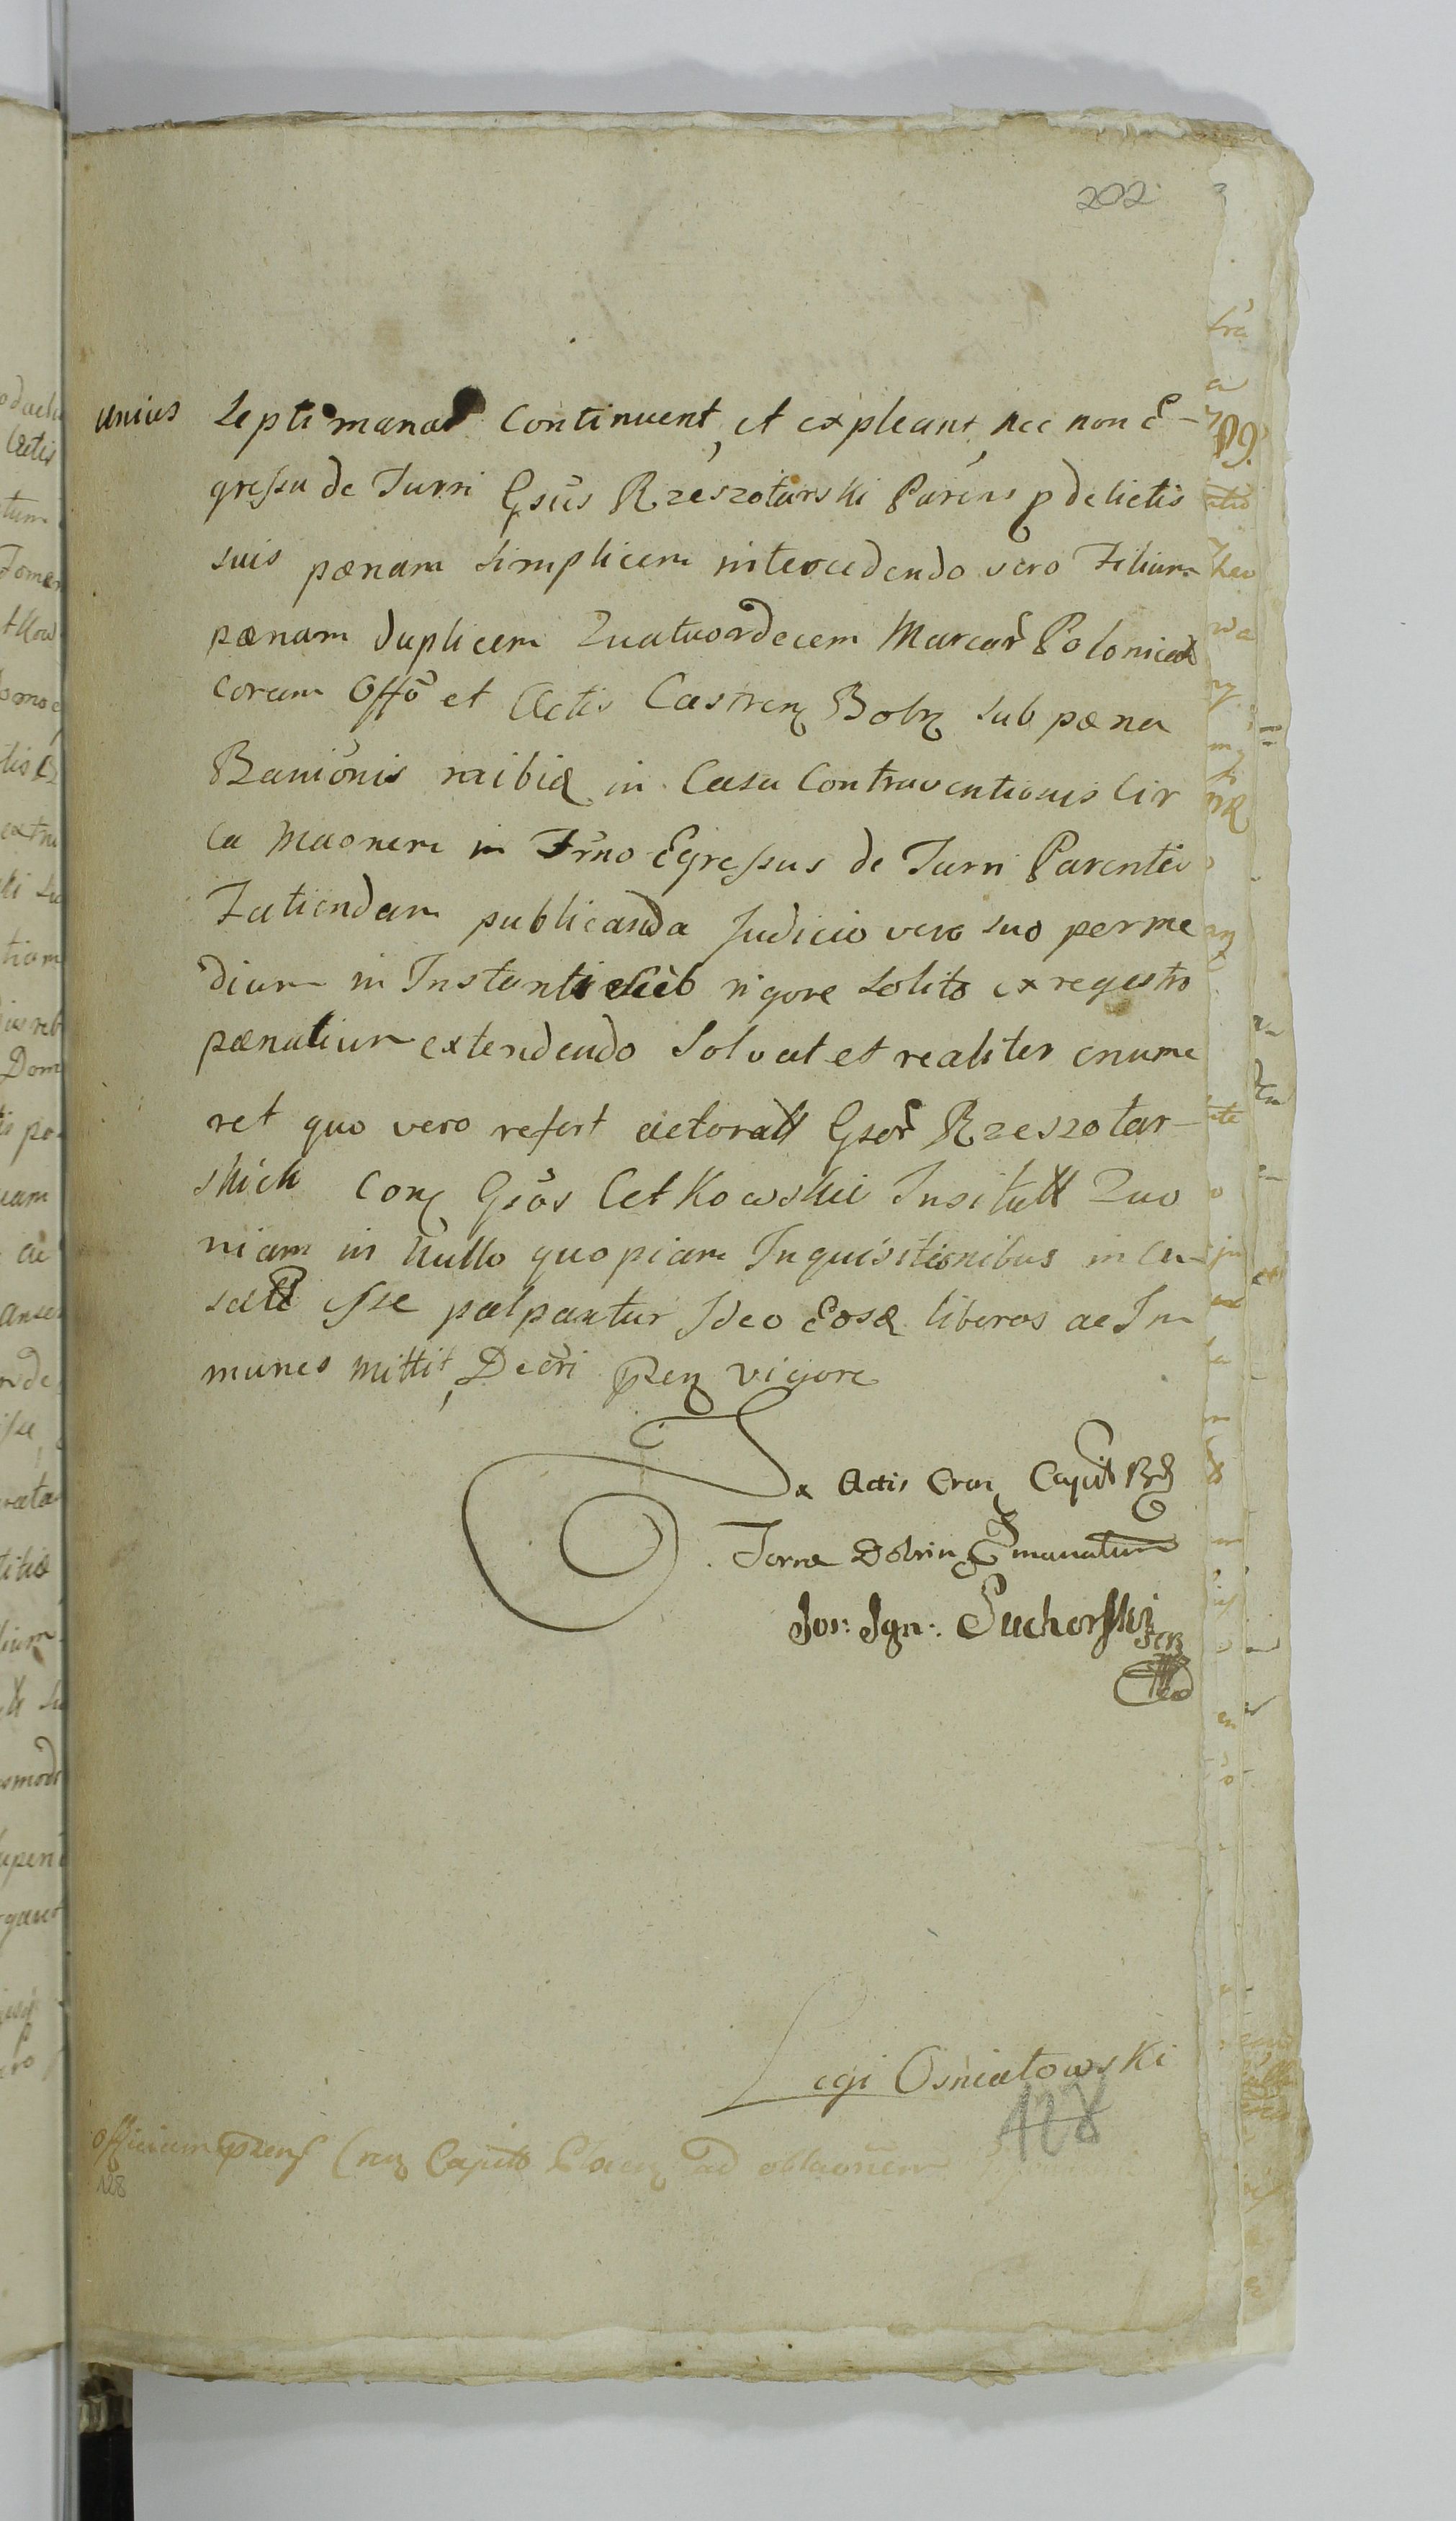 202
unius Septimanas continuent, et expleant, nec non E-
gressu de Turri Gsus Rzeszotarski Parens p delictis
suis pænam simplicem intercedendo vero Filium
pænam duplicem Quatuordecem Marcar Polonical
coram Offo et Actis Castren Bobr sub pæna
Banionis in Casu Contraventionis Cir
ca in Frno Egressus de Turri Parentis
Fatiendam publicanda Judicio vero suo perme
dium in Instanti rigore solito ex regestro
pænalium extendendo Solvat et realiter enume
ret quo vero refert actorall Gsor Rzeszotar-
skich Con Gsos Cetkowskie Insitull Quo
niam in nullo quopiam Inquisitionibus in Cu-
sall esse palpantur Ideo Eosq liberos ac Im
munes mittit, Decri Pzen vigore
Ex Actis Cren Capit
Terræ Dobrin Emanatum
Jos: Ign: Suchorski
Legi Osniałowski
128
officium Cren Capit ad oblaonem
128